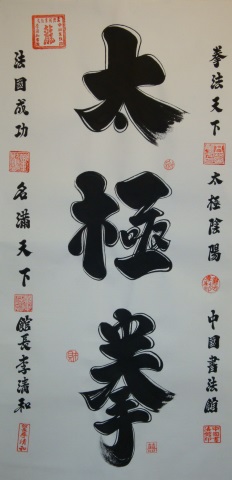 拳法天下
太極陰陽
中國書法館
太極拳
法國成功
名滿天下
館長李清和